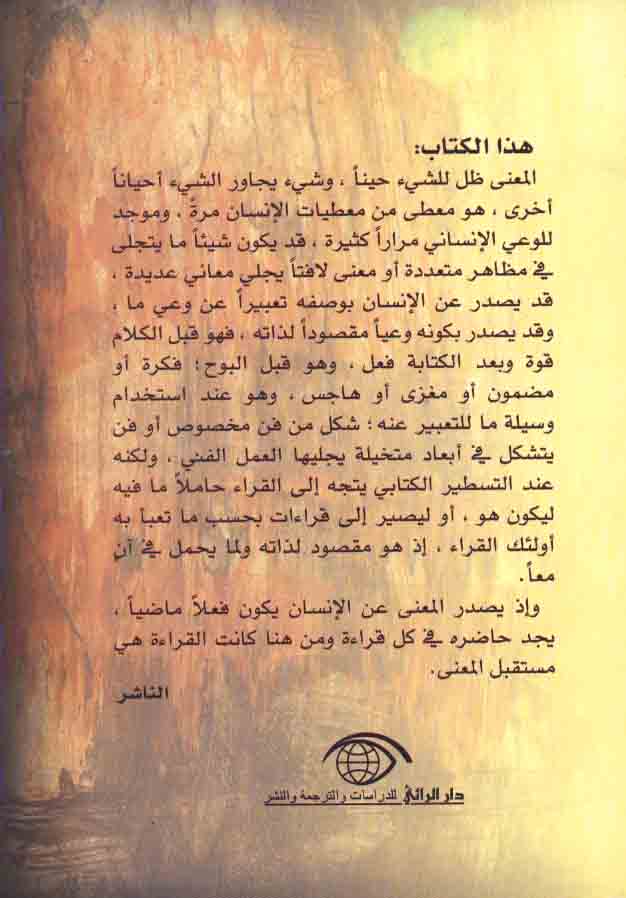 هذا الكتاب:
المعنى ظل للشيء حيناً ، وشيء يجاور الشيء أحياناً
أخرى ، هو معطى من معطيات الإنسان مرةً ، وموجد
للوعي الإنساني مراراً كثيرة ، قد يكون شيئاً ما يتجلى
في مظاهر متعددة أو معنى لافتاً يجلي معاني عديدة ،
قد يصدر عن الإنسان بوصفه تعبيراً عن وعي ما ،
وقد يصدر بكونه وعياً مقصوداً لذاته ، فهو قبل الكلام
قوة وبعد الكتابة فعل ، وهو قبل البوح؛ فكرة أو
مضمون أو مغزى أو هاجس ، وهو عند استخدام
وسيلة ما للتعبير عنه؛ شكل من فن مخصوص أو فن
يتشكل في أبعاد متخيلة يجليها العمل الفني ، ولكنه
عند التسطير الكتابي يتجه إلى القراء حاملاً ما فيه
ليكون هو ، أو ليصير إلى قراءات بحسب ما تعبأ به
أولئك القراء ، إذ هو مقصود لذاته ولما يحمل في آنٍ
معاً.
وإذ يصدر المعنى عن الإنسان يكون فعلاً ماضياً ،
يجد حاضره في كل قراءة ومن هنا كانت القراءة هي
مستقبل المعنى.
الناشر
دار الرائي للدراسات والترجمة والنشر